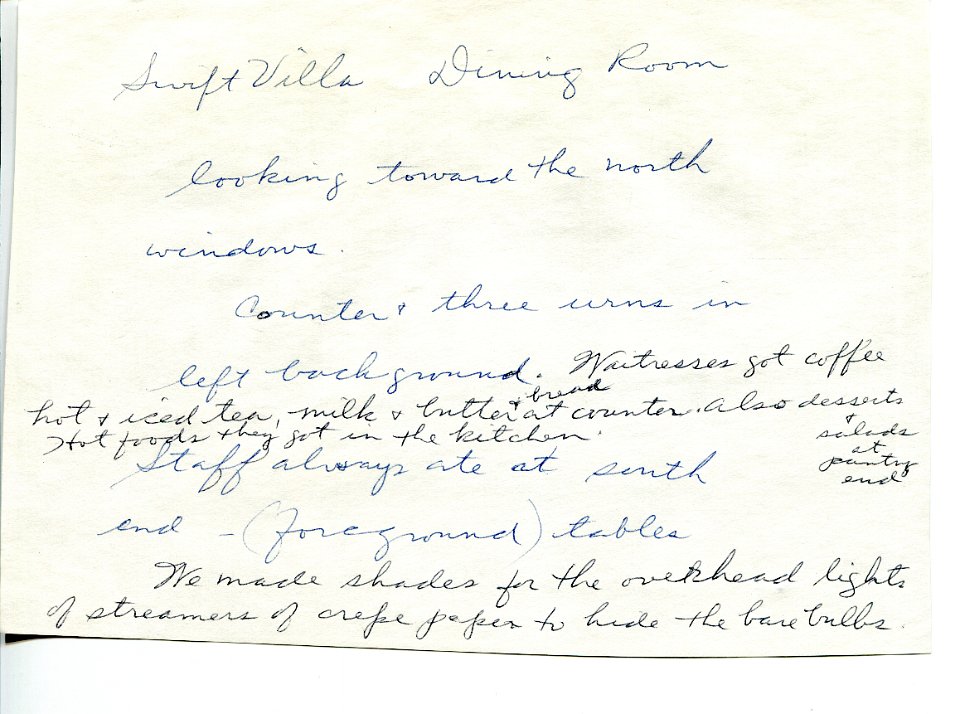 Swift Villa Dining Room
looking toward the north
windows.
Counter & three urns in
left background. Waitresses got coffee
hot & iced tea, milk & butter & bread at counter. Also desserts
& salads
at
pantry
end
Hot foods they got in the kitchen.
Staff always ate at south
end - (foreground) tables
We made shades for the overhead lights
of streamers of crepe paper to hide the bare bulbs.